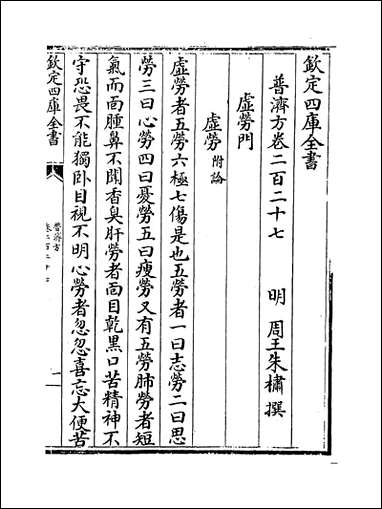 欽定四庫全書
普濟方卷二百二十七
明 周王朱橚撰
虛勞門
虛勞附論
虛勞者五勞六極七傷是也五勞者一曰志勞二曰思
勞三曰心勞四曰憂勞五曰瘦勞又有五勞肺勞者短
氣而面腫鼻不聞香臭肝勞者面目乾黑口苦精神不
守恐畏不能獨卧目視不明心勞者忽忽喜忘大便苦
欽定四庫全書
普濟方
卷二百二十七
一